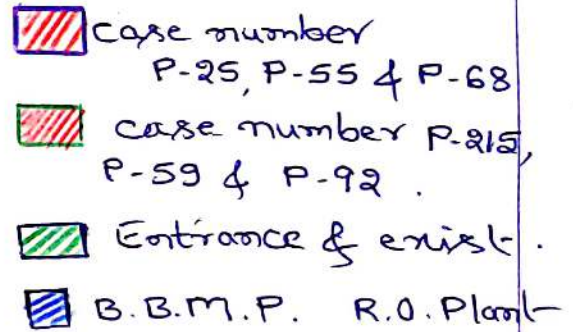 case number
P-25, P-55 & P-68
case number P-215,
P-59 & P-92 .
Entrance & exist .
B.B.M.P. R.O. Plant